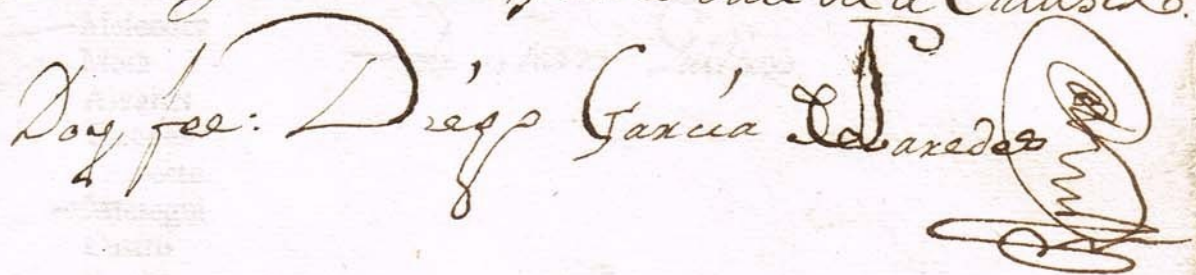 Doy fee: Diego García de Paredes